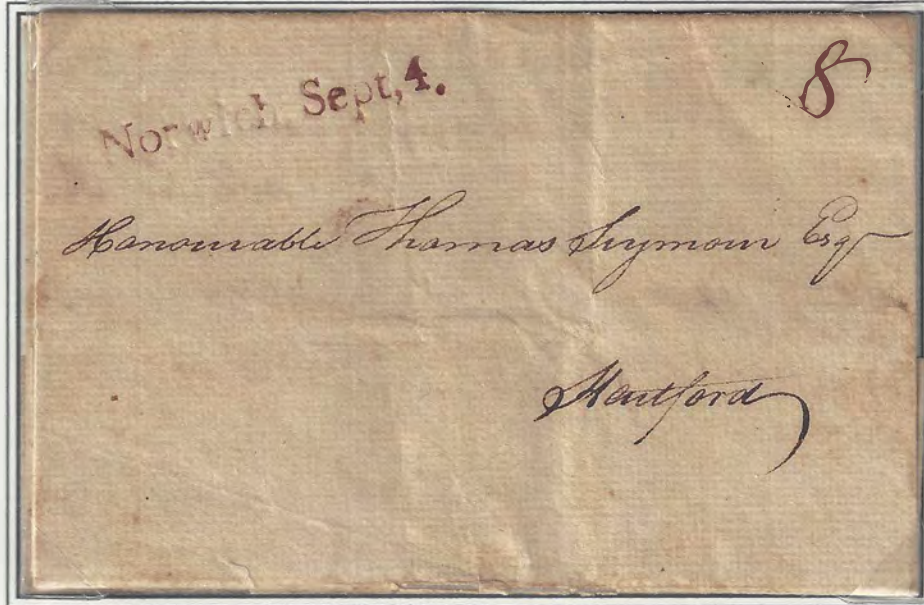 Norwich, Sept, 4.
8
Honourable Thomas Seymour Esqr
Hartford